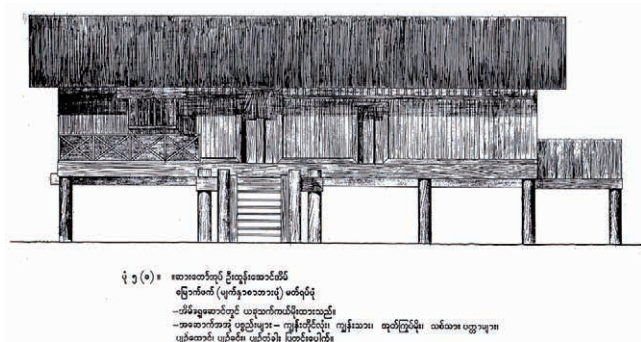 ပုံ ၅ (ခ) ။ ဆားတော်အုပ် ဦးထွန်းအောင်အိမ်
မြောက်ဖက် (မျက်နှာစာဘားပုံ) မတ်ရပ်ပုံ
–အိမ်ရှေ့ဆောင်တွင် ယခုသက်ကယ်မိုးထားသည်။
–အဆောက်အအုံ ပစ္စည်းများ – ကျွန်းတိုင်လုံး၊ ကျွန်းသား၊ အုတ်ကြွပ်မိုး၊ သစ်သား ပတ္တာများ၊
ပျဉ်ထောင်၊ ပျဉ်ခင်း၊ ပျဉ်တံခါး ပြတင်းပေါက်။